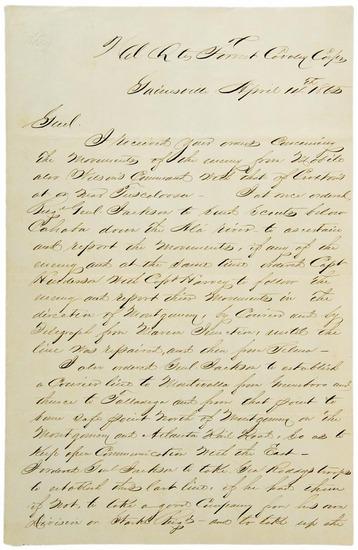 Hd Qtrs Forrest Cavalry Corps
Gainesville April 10th 1865
Genl.
I received your orders concerning
the Movements of the enemy from Mobile
also Wilson's Command West of
at or Near Tuscaloosa — I at once ordered
Brig Genl Jackson to send Scouts below
Cahaba down the Ala river to ascertain
and report the Movements, if any of the
enemy and at the same time Capt
Henderson With Capt Harvey to follow the
enemy and report their Movements in the
direction of Montgomery, by Courier and by
Telegraph from Junction, until the
line Was repaired, and then from Selma —
I also ordered Genl Jackson to establish
a Courier line to Montevallo from
and thence to Talladega and from that point to
some safe point North of Montgomery on the
Montgomery and Atlanta Rail Road, so as to
keep open Communication With the East —
I ordered Genl Jackson to take troops
to establish this last line, if he had them
if Not, to take a good Company from his own
Division or Brigd — and to take up the